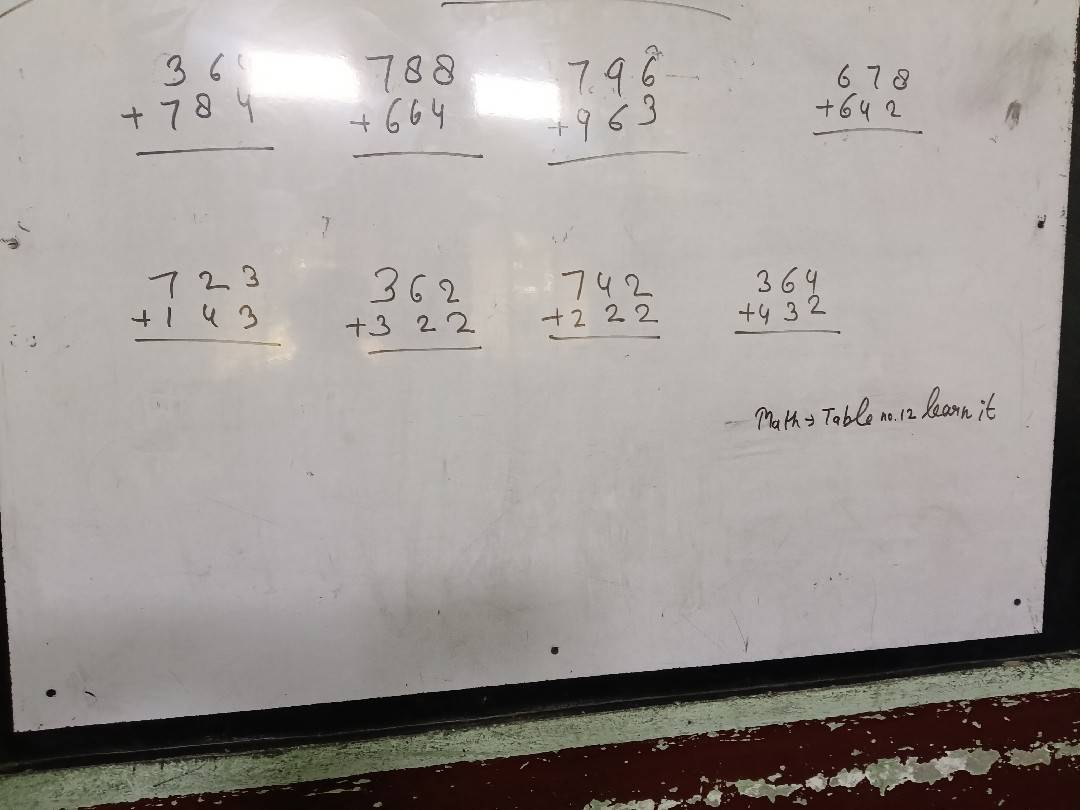 36 788 796 678
+784 +664 +963 +642
723 362 742 364
+143 +322 +222 +432
Math → Table no. 12 learn it